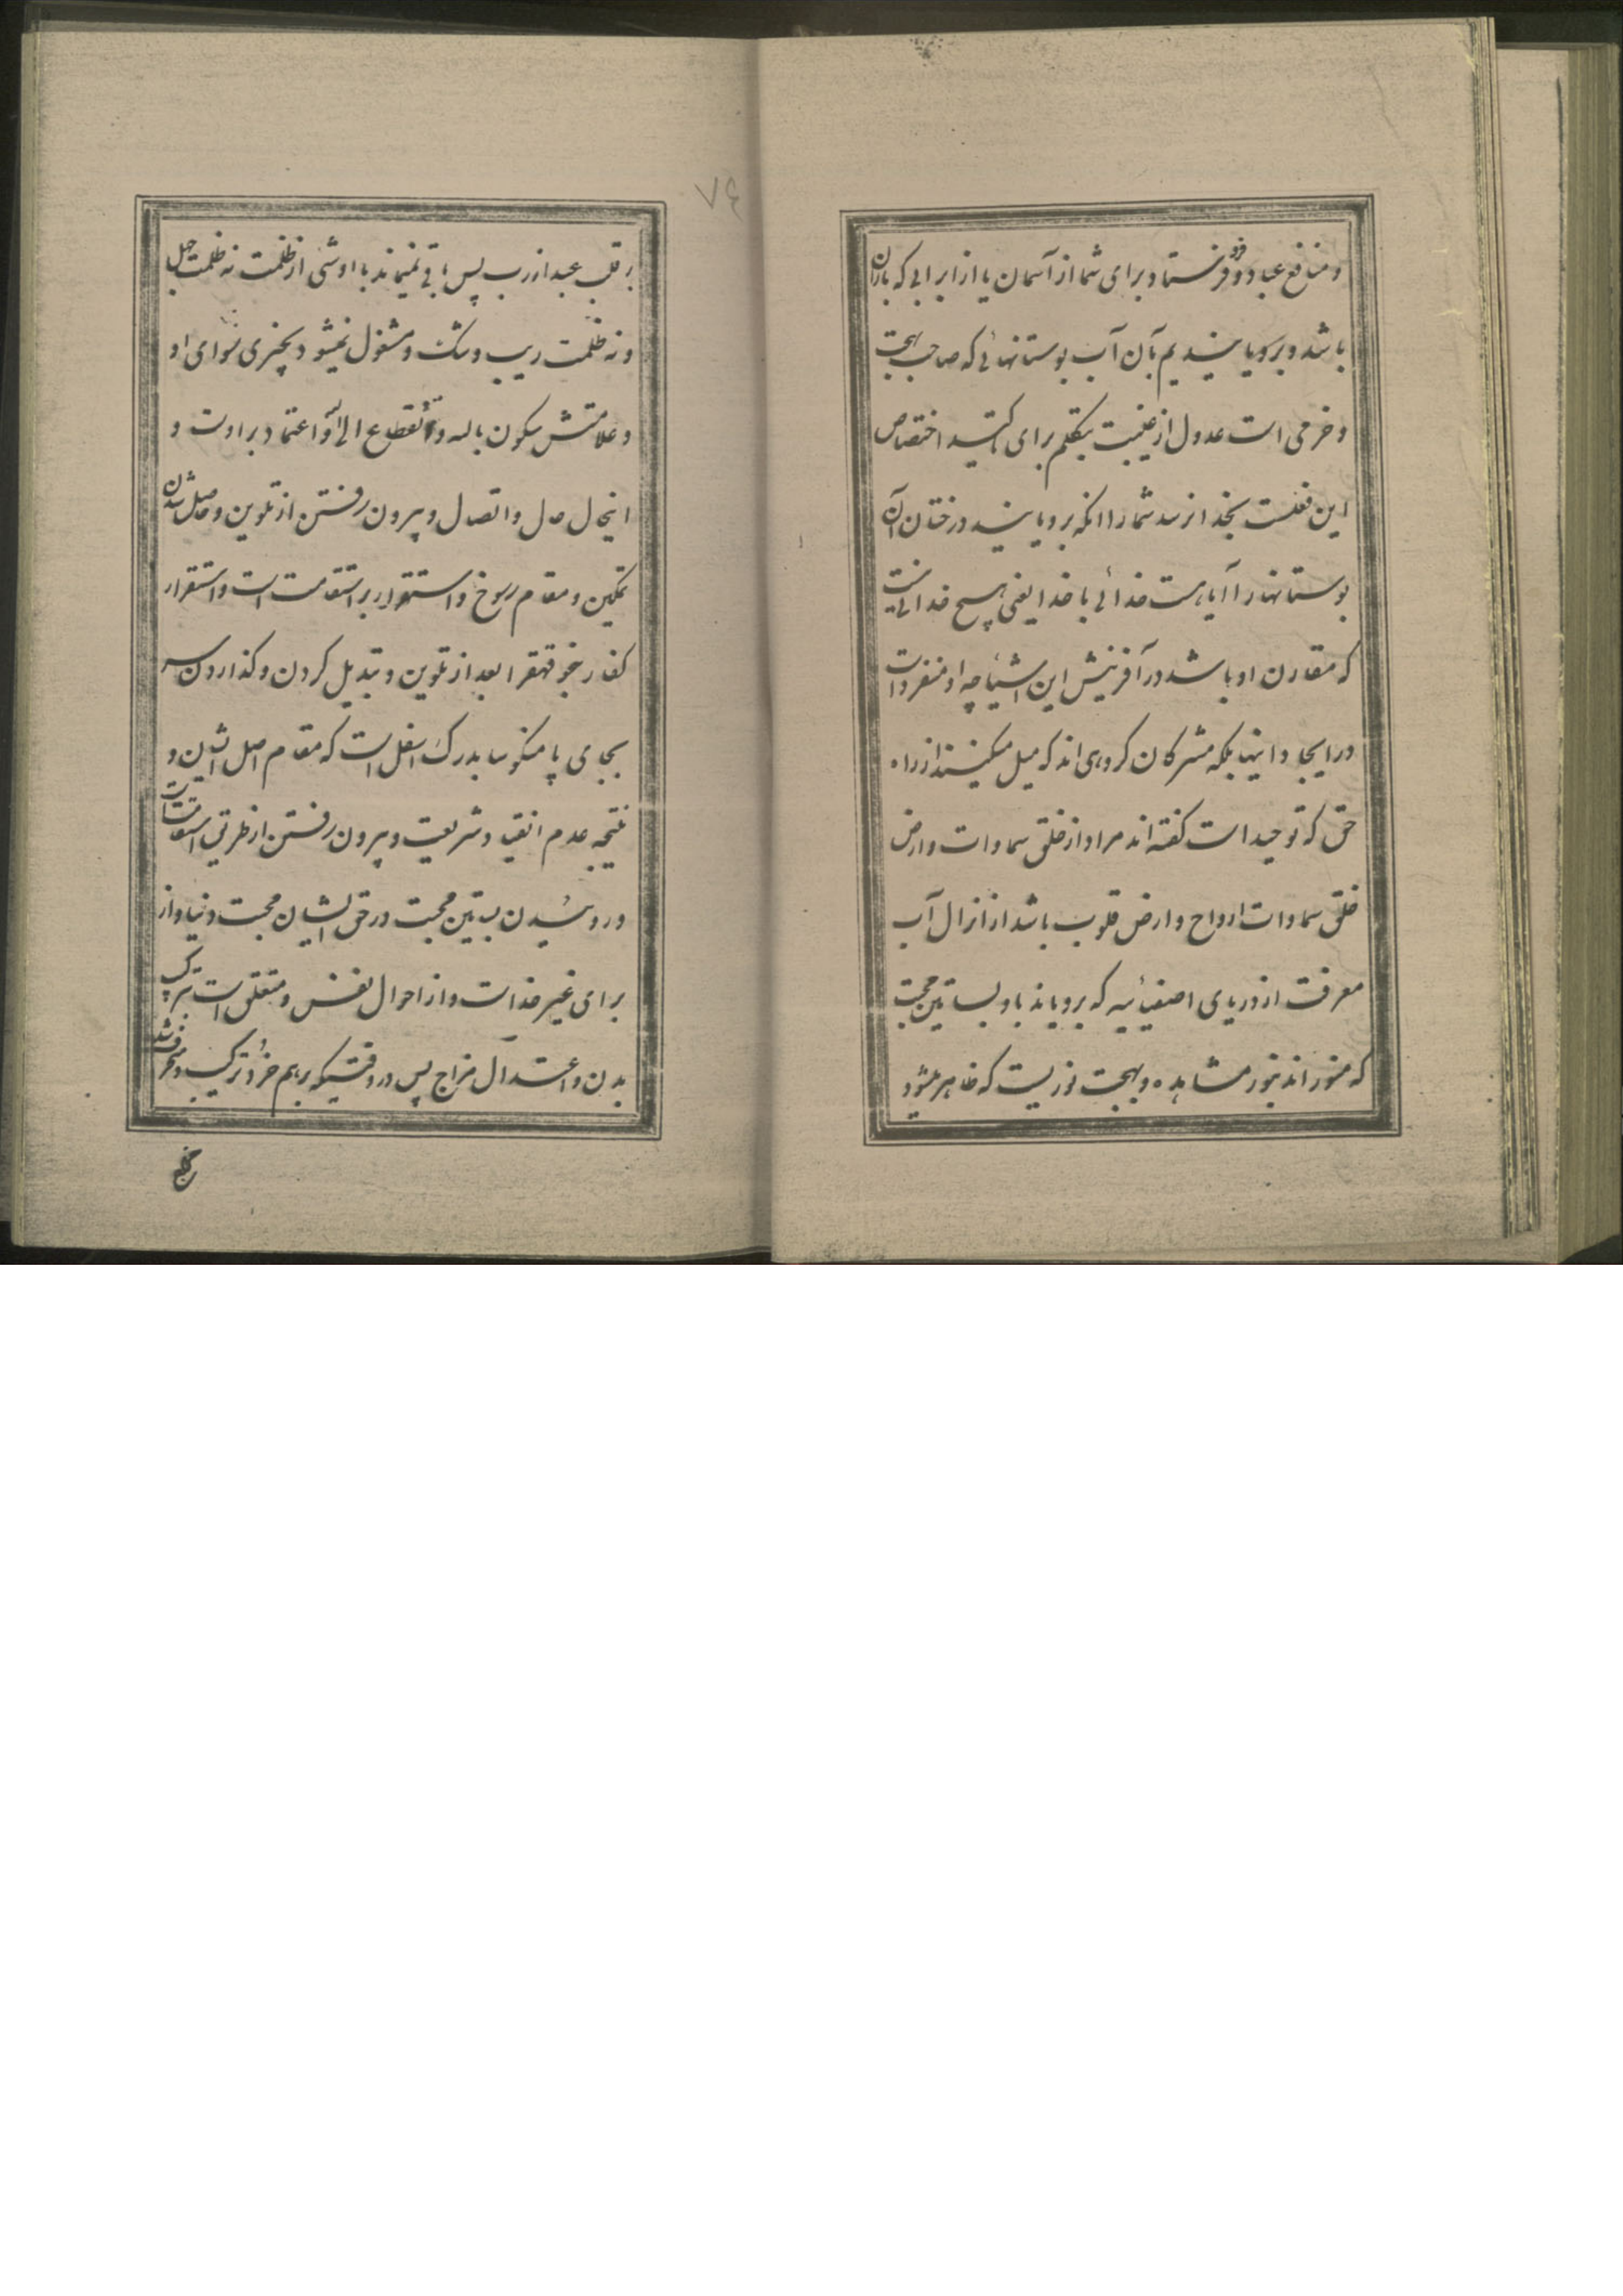 و منافع عباد و فرو فرستاد برای شما از آسمان یا از ابرابی که باران
باشد و برویانیدیم بآن آب بوستانهائی که صاحب بهجت
و خرمی است عدول از غیبت بتکلم برای تاکید اختصاص
این فعلست بخدا نرسد شما را انکه برویانید درختان آن
بوستانها را آیا هست خدائی با خدا یعنی هیچ خدائی نیست
که مقارن او باشد در آفرینش این اشیا چه او منفرد است
در ایجاد اینها بلکه مشرکان کروهی اند که میل میکنند از راه
حق که توحید است کفته اند مراد از خلق سماوات و ارض
خلق سماوات ارواح و ارض قلوب باشد از انزال آب
معرفت از دریای که برویاند باو بساتین محبت
که منور اند بنور مشاهده و بهجت نوریست که ظاهر میشود
٧٤
بر قلب عبد از رب پس باقی نمیماند با او شی از ظلمت نه ظلمت جهل
و نه ظلمت ریب و شک و مشغول نمیشود بچیزی سوای او
و علامتش سکون بالله و انقطاع الی الله و اعتماد بر اوست و
اینحال حال و اتصال و بیرون رفتن از تلوین و حاصل شدن
تمکین و مقام رسوخ و استقرار بر استقامت است و استقرار
کفار بنحو قهقرا بعد از تلوین و تبدیل کردن و کذاردن سر
بجای پا منکوسا بدرک اسفل است که مقام اصل ایشان و
نتیجه عدم انقیاد شریعت و بیرون رفتن از طریق استقامت است
و روئیدن بساتین محبت در حق ایشان محبت دنیا و از
برای غیر خداست و از احوال نفس و متعلق است بترکیب
بدن و اعتدال مزاج پس در وقتیکه برهم خورد ترکیب و منحرف شد